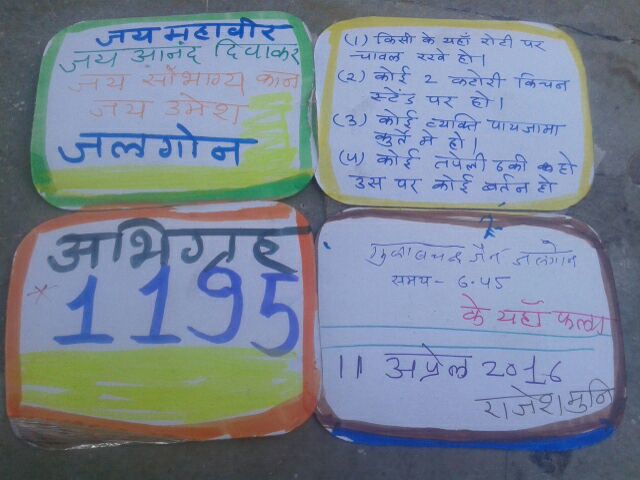 जय महावीर
जय आनंद दिवाकर
जय सौभाग्य कान
जय उमेश
जलगोन
(1) किसी के यहाँ रोटी पर
चावल रखे हो।
(2) कोई 2 कटोरी किचन
स्टेंड पर हो।
(3) कोई व्यक्ति पायजामा
कुर्ते मे हो।
(4) कोई तपेली ढकी हो
उस पर कोई बर्तन हो
अभिग्रह
*1195
जैन जलगोन
समय - 6.45
के यहाँ फला
11 अप्रेल 2016
राजेश मुनि